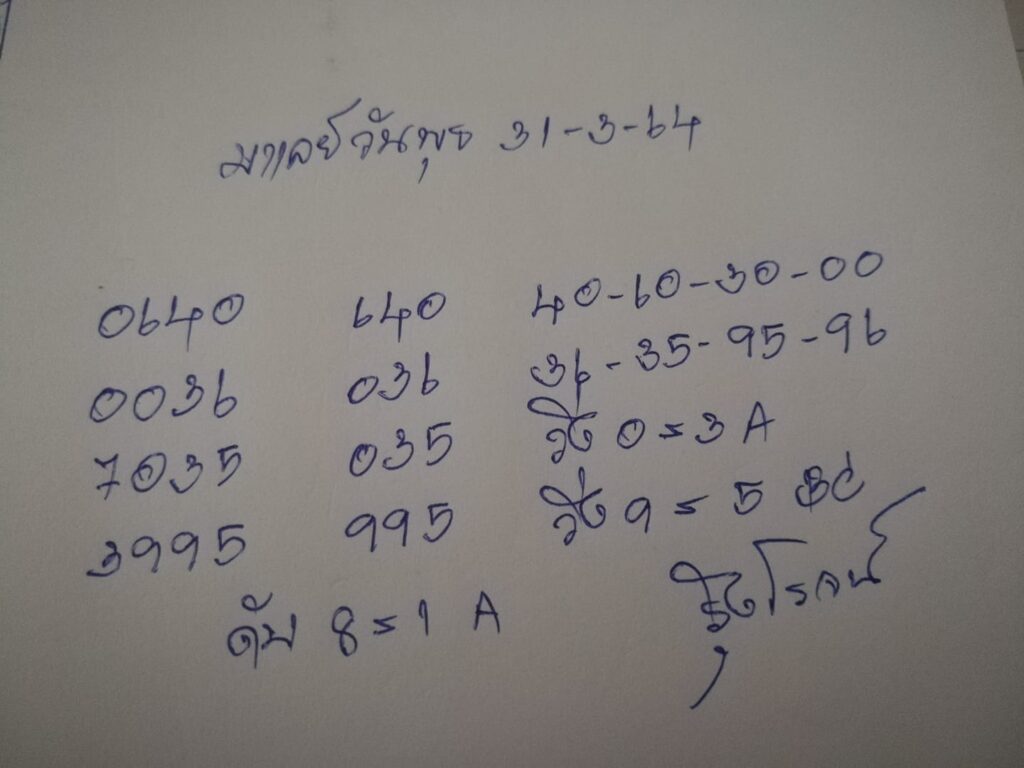 มาเลย์วันพุธ 31-3-64
0640 640 40-60-30-00
0036 036 36-35-95-96
7035 035 วิ่ง 0=3 A
3995 995 วิ่ง 9=5 BC
ดับ 8=1 A